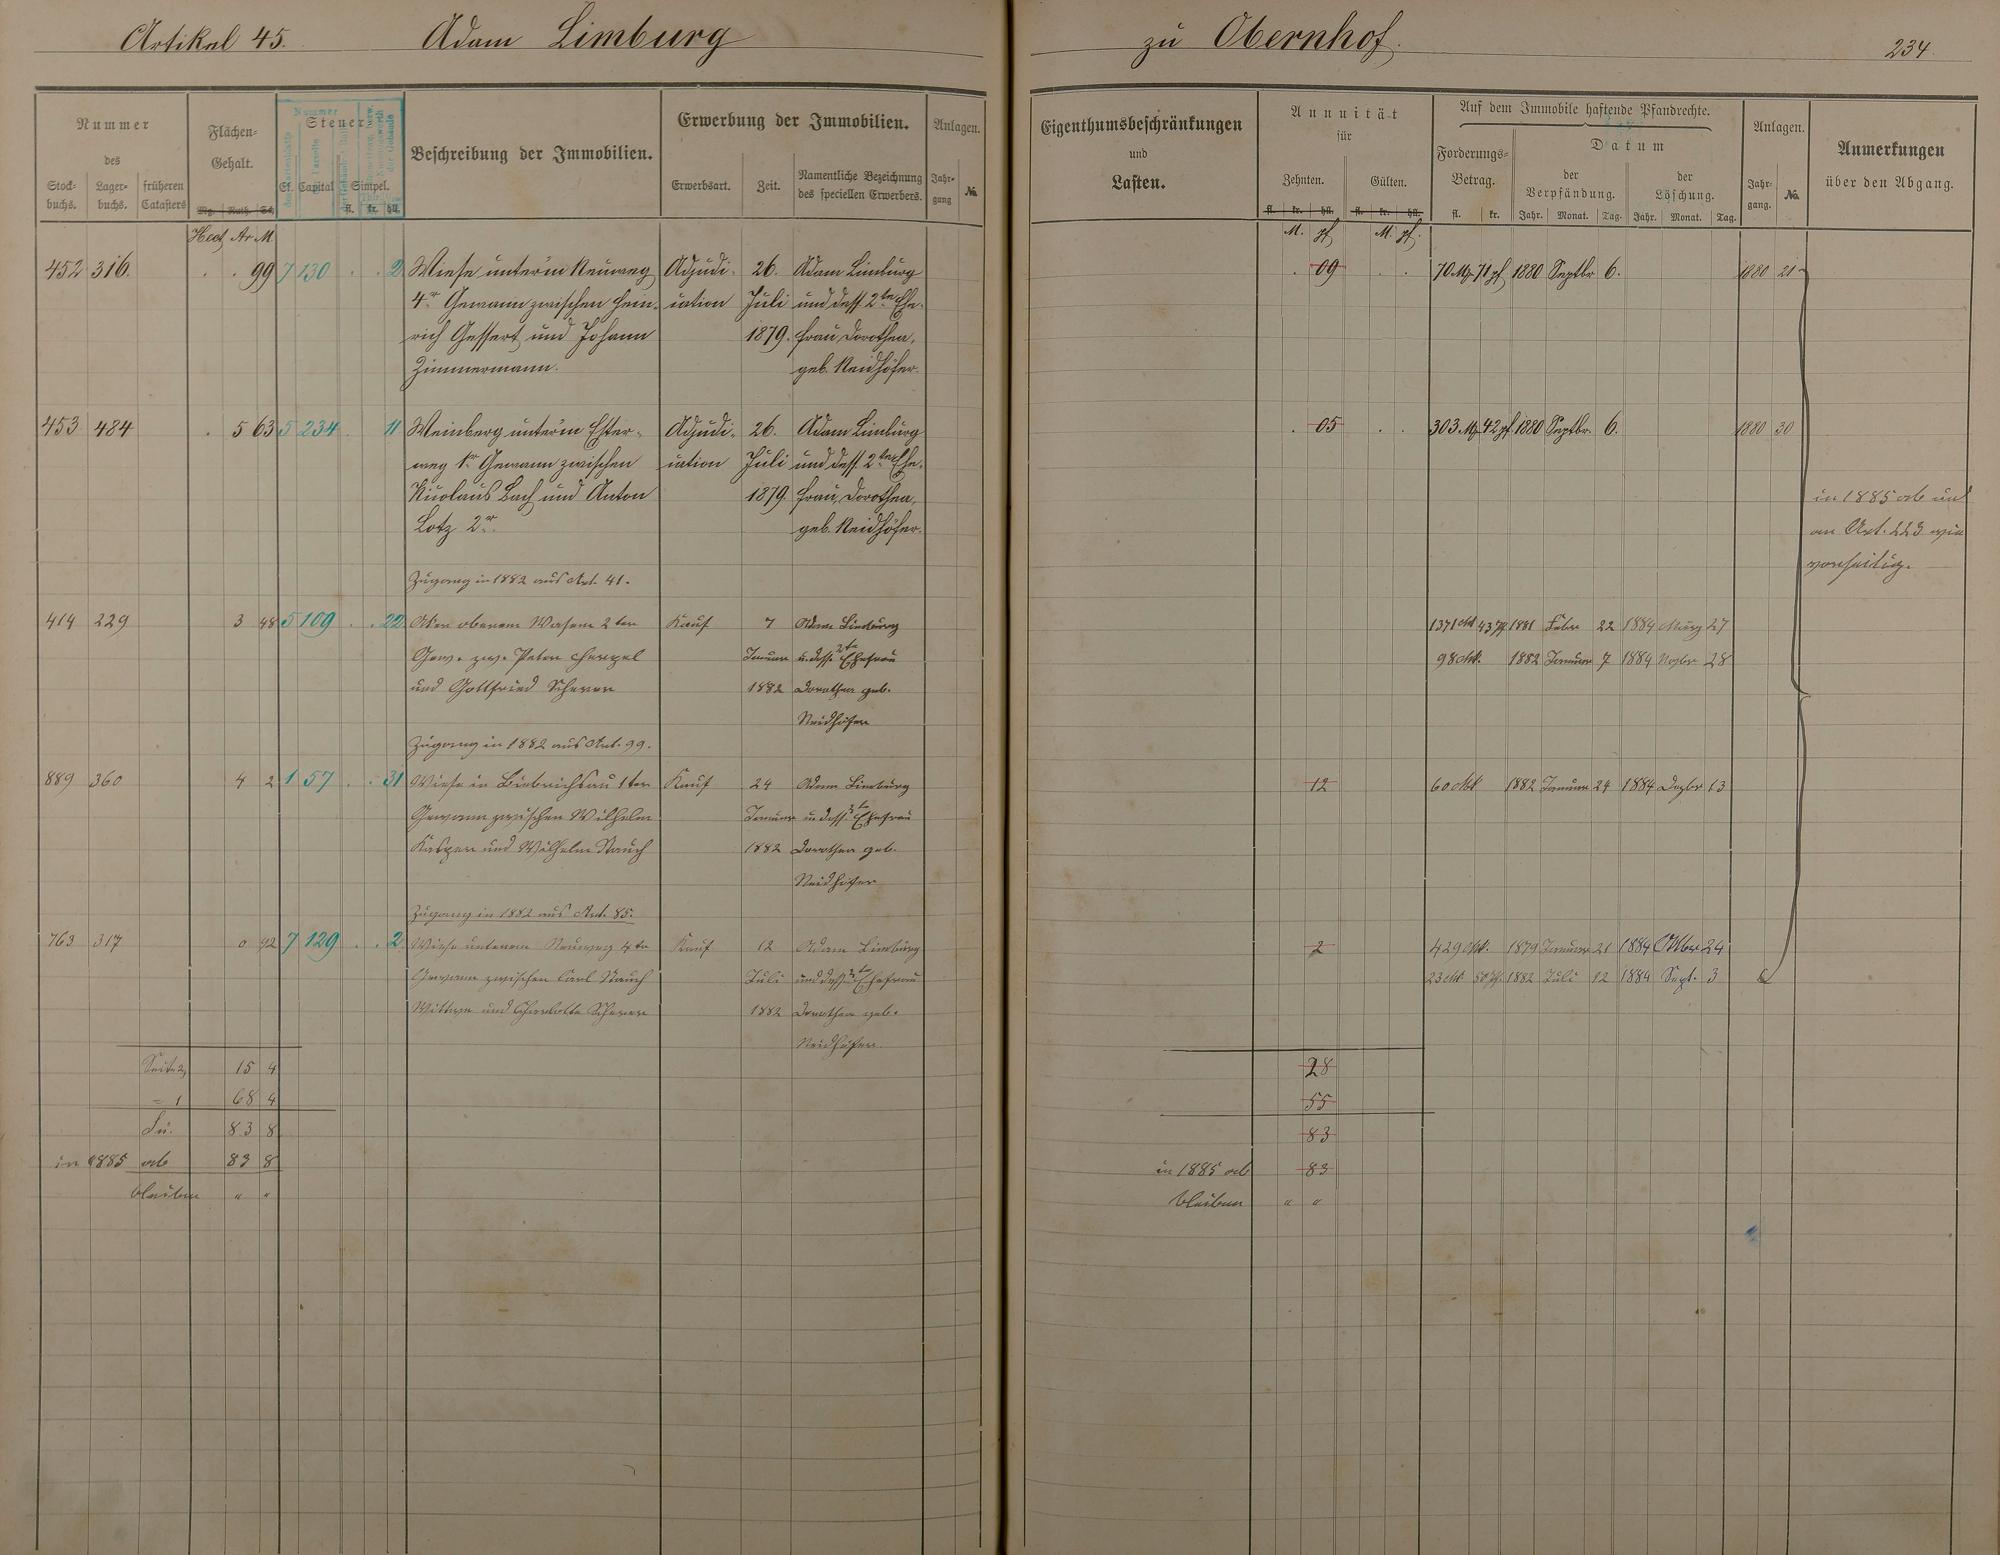 Artikel 45. Adam Limburg zu Obernhof. 234.
Nummer des
Stock-buchs. Lager-buchs. früheren Catasters
Flächen-Gehalt.
Mg. Ruth. Sch.
Steuer
Cl. Capital Simpel.
fl. kr. hll.
Beschreibung der Immobilien.
Erwerbung der Immobilien.
Erwerbsart. Zeit. Namentliche Bezeichnung des speciellen Erwerbers.
Anlagen.
Jahr-gang No.
Eigenthumsbeschränkungen und Lasten.
Annuität für
Zehnten. Gülten.
fl. kr. hll. fl. kr. hll.
Auf dem Immobile haftende Pfandrechte.
Forderungs-Betrag. Datum
der Verpfändung. der Löschung.
fl. kr. Jahr. Monat. Tag. Jahr. Monat. Tag.
Anlagen.
Jahr-gang. No.
Anmerkungen über den Abgang.
Hect Ar M. M. pf M. pf.
452 316. . . 99 7 130 . . 2 Wiese unter'm Neuweg Adjudi- 26. Adam Limburg . 09 . . 70 M 71 pf 1880 Septbr 6. 1880 21
4r Gewann zwischen Hein- cation Juli und dess. 2te Ehe-
rich Gessert und Johann 1879. frau, Dorothea,
Zimmermann. geb. Neidhöfer.
453 484 . 5 63 5 234 . 11 Weinberg unter'm Ester- Adjudi- 26. Adam Limburg . 05 . . 303 M 42 pf 1880 Septbr. 6. 1880 30
weg 1r Gewann zwischen cation Juli und dess. 2te Ehe-
Nicolaus Bach und Anton 1879. frau, Dorothea,
Lotz 2r. geb. Neidhöfer.
in 1885 ab und
an Art. 223 wie
vorseitig.
Zugang in 1882 aus Art. 41.
414 229 3 48 5 109 . . 22 Acker oberem Wasem 2ter Kauf 7 Adam Limburg 1371 M 43 pf 1881 Febr 22 1884 März 27
Gew. zw. Peter Januar u. dess. 2te Ehefrau 98 M. 1882 Januar 7 1884 Novbr 28
und Gottfried Scherer 1882 Dorothea geb.
Neidhöfer
Zugang in 1882 aus Art. 99.
889 360 4 2 1 57 . . 31 Wiese in Bieberichsau 1ter Kauf 24 Adam Limburg 12 60 M 1882 Januar 24 1884 Dezbr 13
Gewann zwischen Wilhelm Januar u. dess. 2te Ehefrau
Kasper und Wilhelm Stauch 1882 Dorothea geb.
Neidhöfer
Zugang in 1882 aus Art. 85.
763 317 0 92 7 129 . . 2 Wiese unterem Neuweg 4te Kauf 12 Adam Limburg 2 429 M. 1879 Januar 21 1884 Oktbr 24
Gewann zwischen Carl Stauch Juli und dess. 2te Ehefrau 23 M 50 pf. 1882 Juli 12 1884 Sept. 3
Wittwe und Charlotte Scherer 1882 Dorothea geb.
Neidhöfer.
Seite 2, 15 4 28
= 1 68 4 55
Su. 83 8 83
in 1885 ab 83 8 in 1885 ab 83
bleiben " " bleiben " "